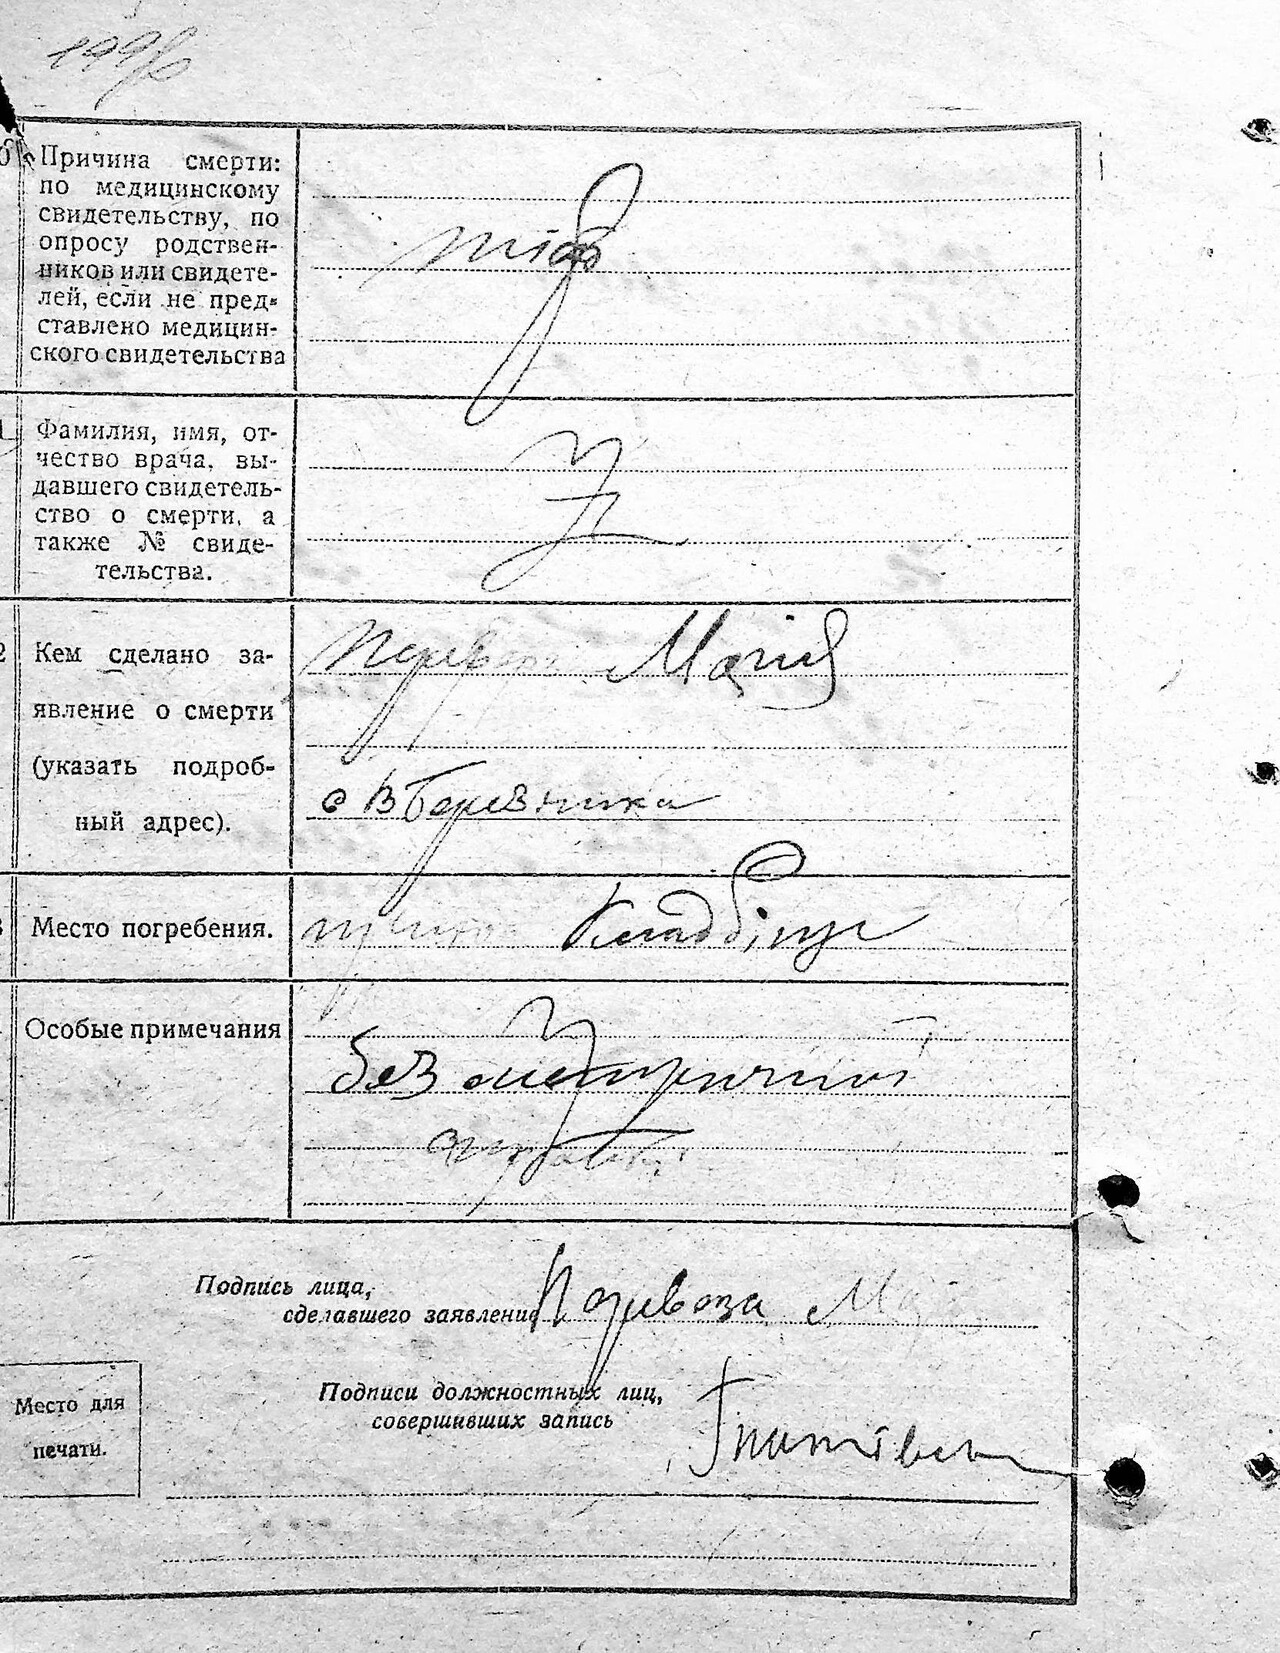 Причина смерти:
по медицинскому
свидетельству, по
опросу родствен-
ников или свидете-
лей, если не пред-
ставлено медицин-
ского свидетельства
тіф
Фамилия, имя, от-
чество врача, вы-
давшего свидетель-
ство о смерти, а
также № свиде-
тельства.
Кем сделано за-
явление о смерти
(указать подроб-
ный адрес).
Марія
с В Березянка
Место погребения.
Кладбіще
Особые примечания
без
Подпись лица,
сделавшего заявление
Перевоза
Место для
печати.
Подписи должностных лиц,
совершивших запись